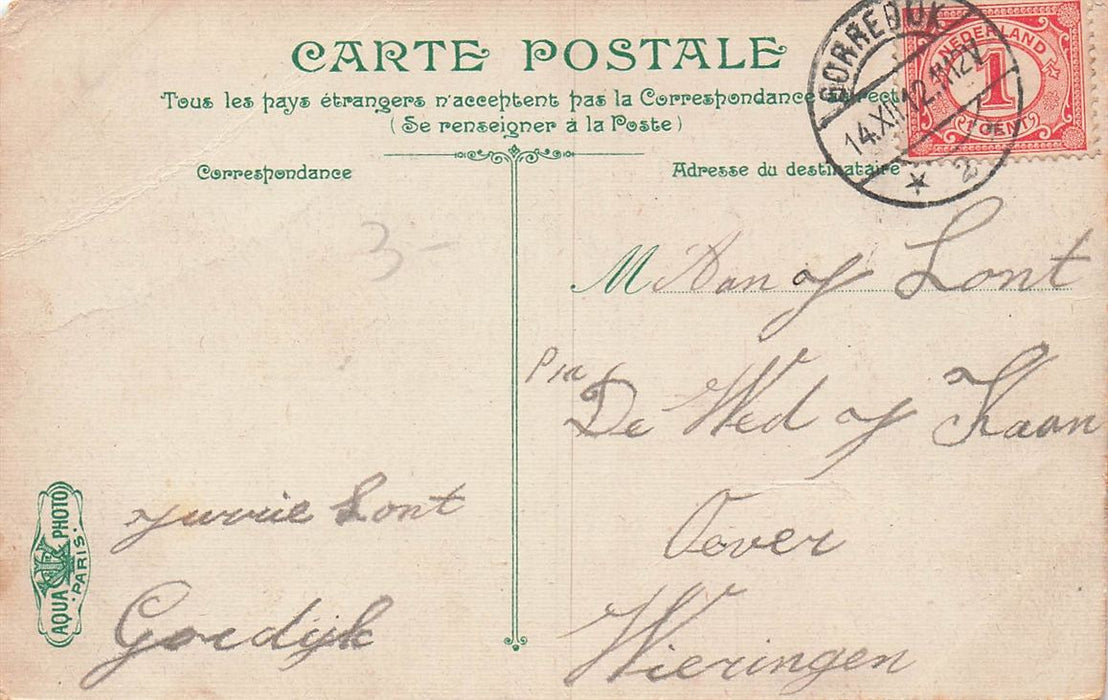 CARTE POSTALE
Tous les pays étrangers n'acceptent pas la Correspondance
(Se renseigner à la Poste)
Correspondance
Adresse du destinataire
GORREDIJK
14.XII.12.
2
NEDERLAND
1
1 CENT
3-
M Aan
Lont
De Wed
Kaan
Oever
Wieringen
Jurrie Lont
Goedijk
AQUA PHOTO
PARIS